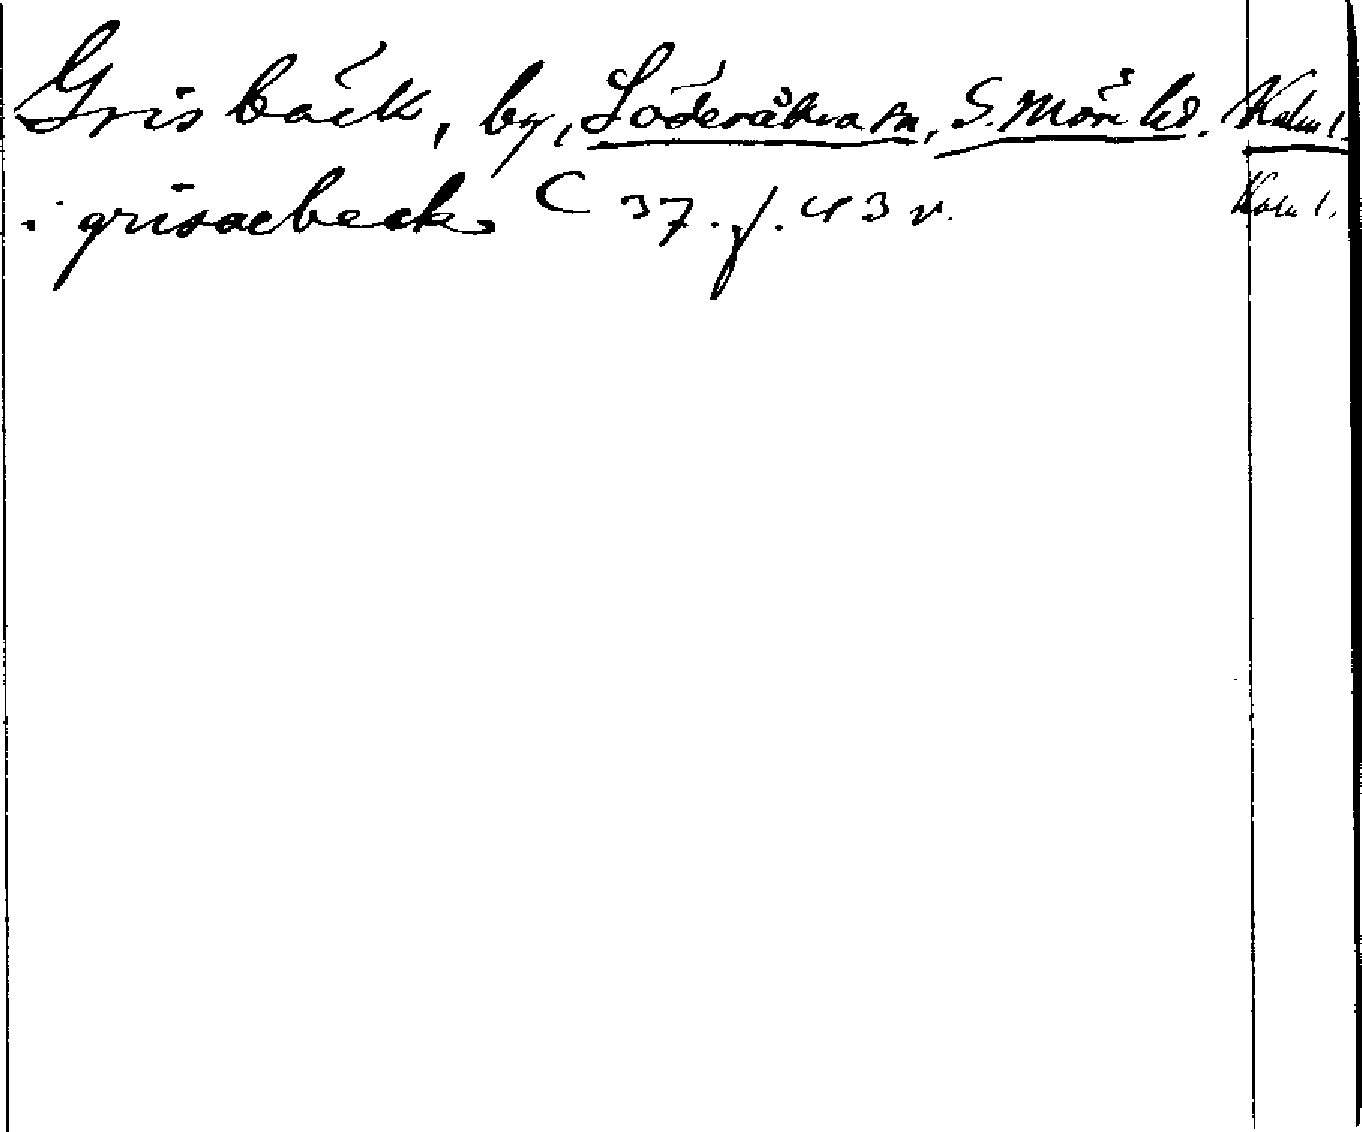 Grisbäck, by, Söderåkra sn, S. Möre hd. Kalm l.
i grisaebeck C 37. f. 43 v. Kalm l.